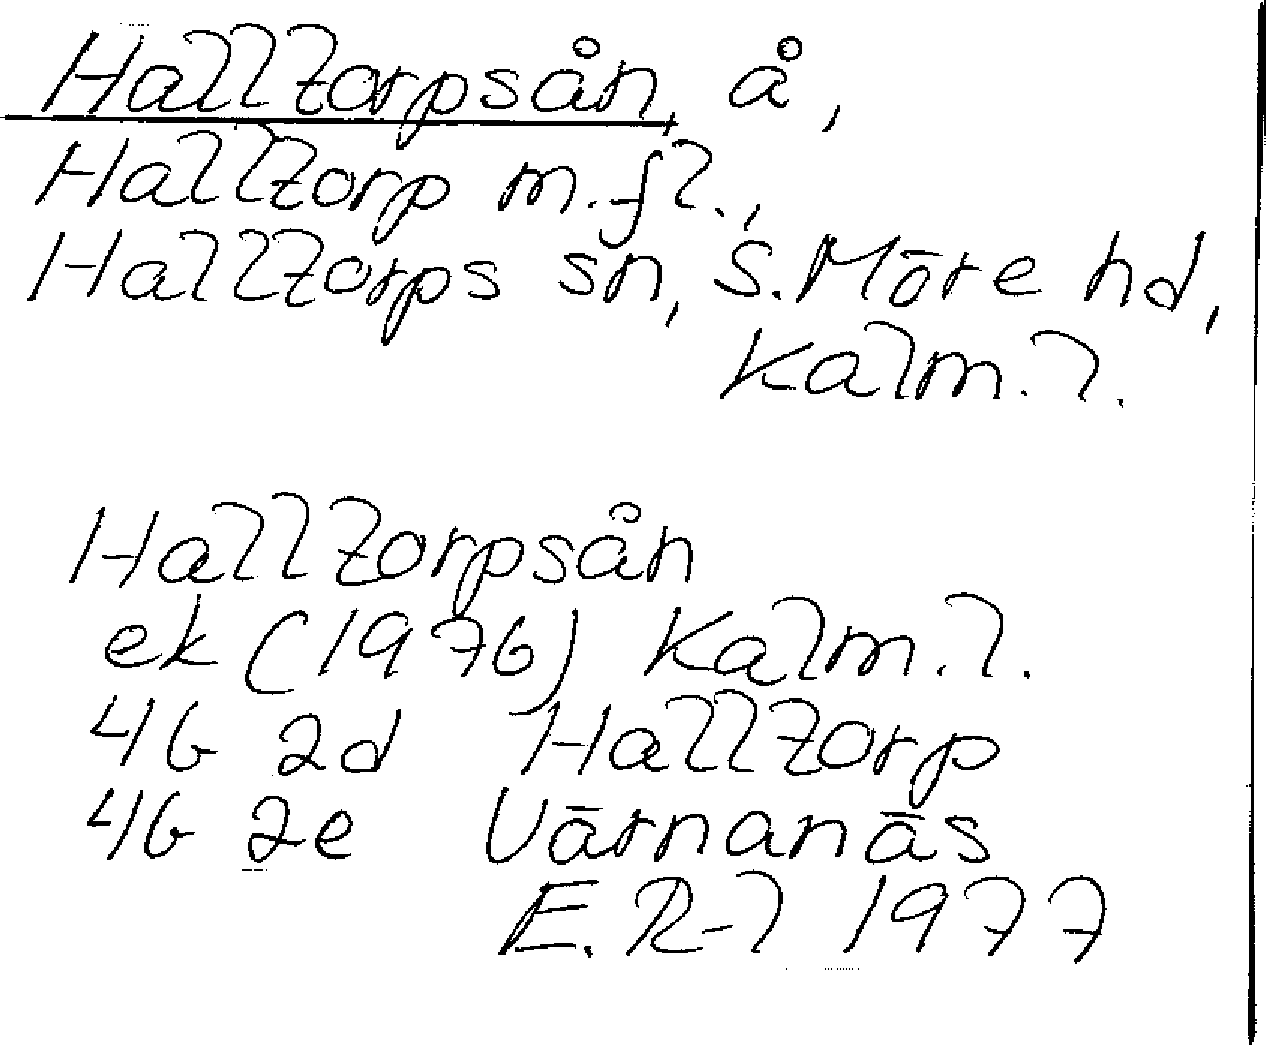 Halltorpsån, å,
Halltorp m.fl.,
Halltorps sn, S. Möre hd,
Kalm. l.
Halltorpsån
ek (1976) Kalm. l.
4G 2d Halltorp
4G 2e Värnanäs
E. R-l 1977